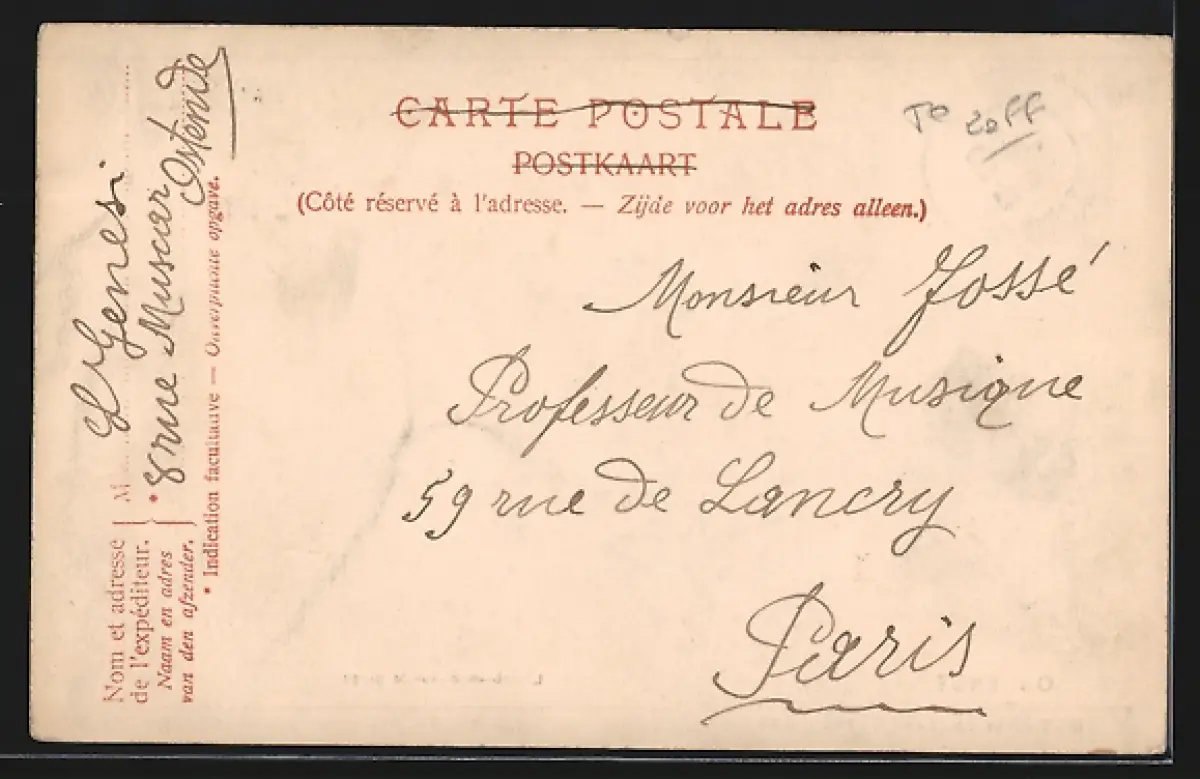 CARTE POSTALE
POSTKAART
(Côté réservé à l'adresse. — Zijde voor het adres alleen.)
Monsieur Jossé
Professeur de Musique
59 rue de Lancry
Paris
20 FF
Nom et adresse
de l'expéditeur.
Naam en adres
van den afzender.
M
Genesi
* 8 rue Muscar
Ostende
* Indication facultative — Onverplichte opgave.